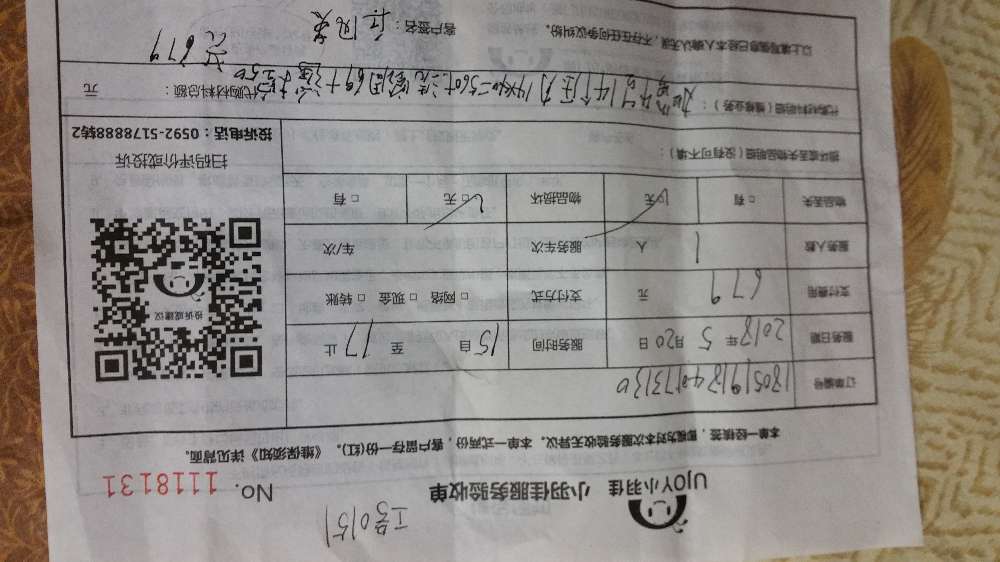 工号0151
UJOY小羽佳 小羽佳服务验收单 No. 1118131
本单一经核签,即视为对本次服务验收无异议。本单一式两份,客户留存一份(红)。《维保须知》详见背面。
订单编号
服务日期 2018年 5月20日 服务时间 15自 至 17止
支付费用 679 元 支付方式 □网络 □现金 □转账
服务人数 1 人 服务车次 车/次
物品丢失 □有 □无 物品损坏 □无 □有
损坏或丢失物品明细(没有可不填):
投诉或建议
扫码评价或投诉
投诉电话:0592-5178888转2
代购材料明细(维修业务): 代购材料总额: 元
以上填写信息已经本人确认无误,不存在任何争议纠纷。 客户签名:
679